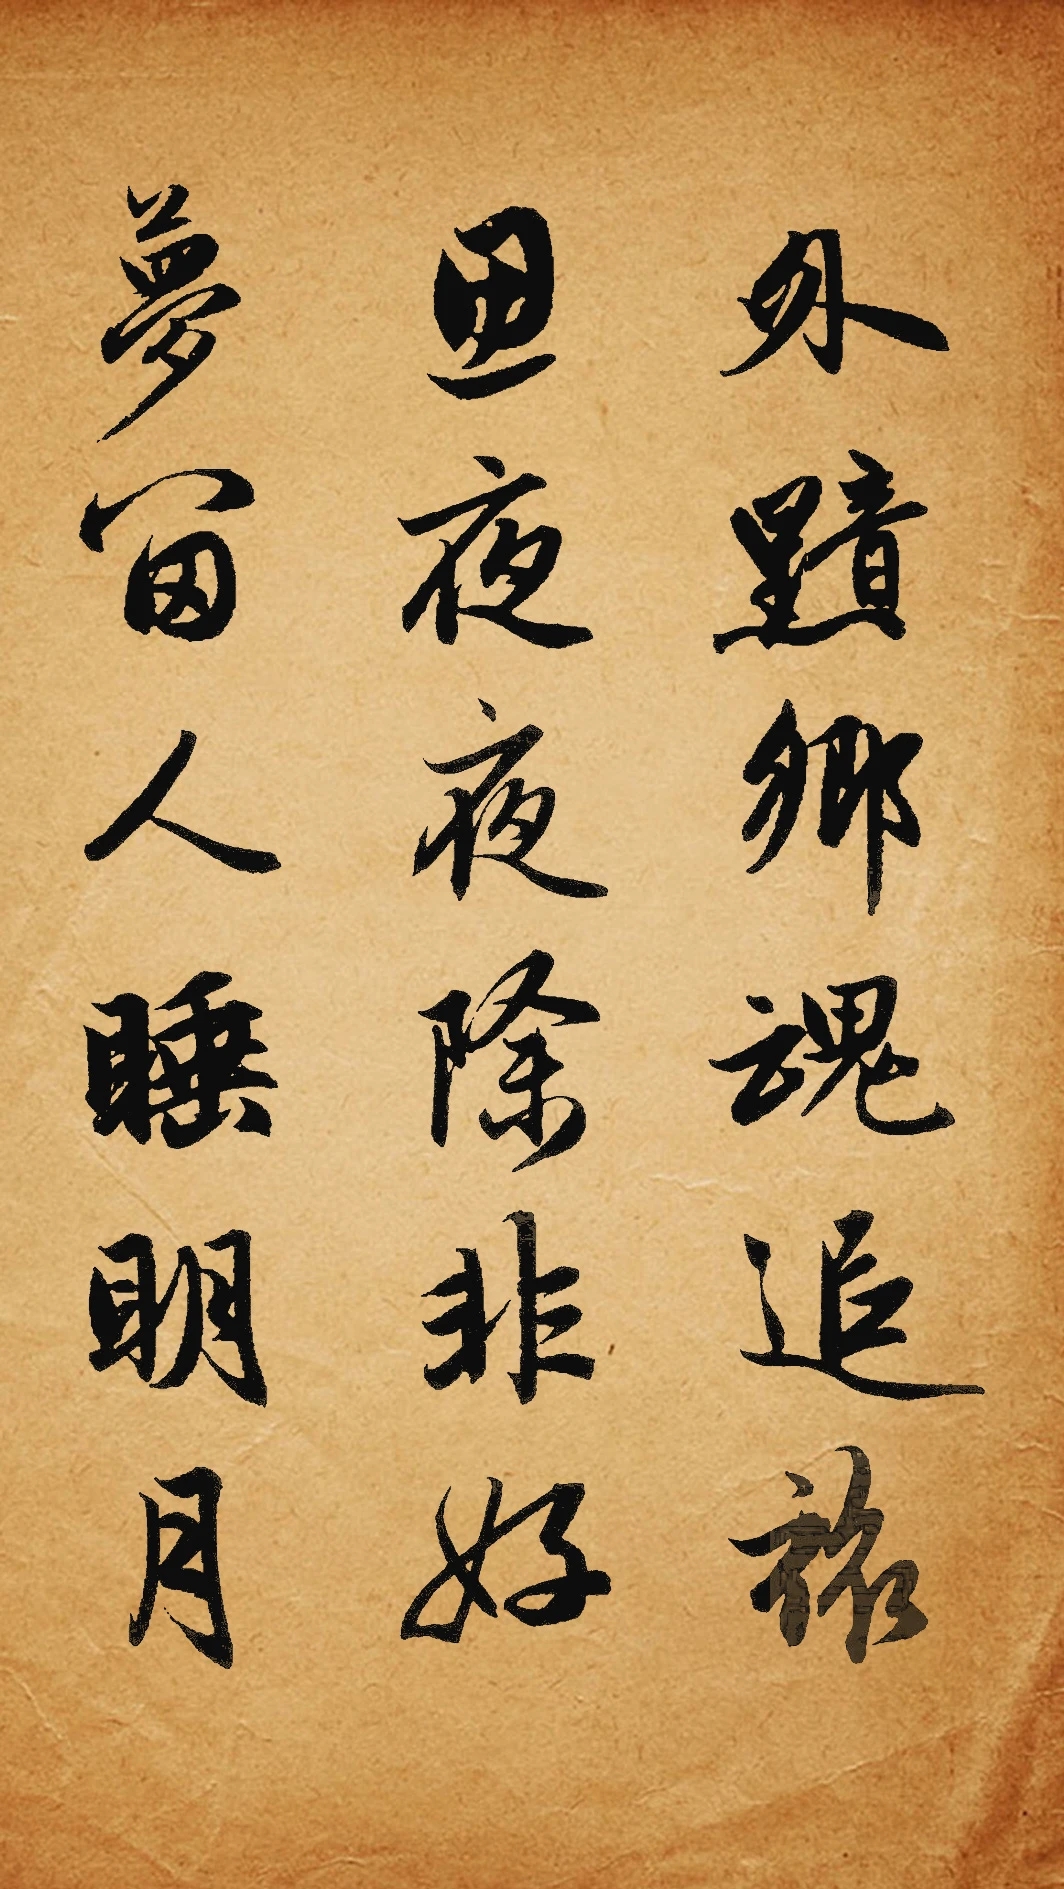 外黯鄉魂追旅
思夜夜除非好
夢留人睡明月